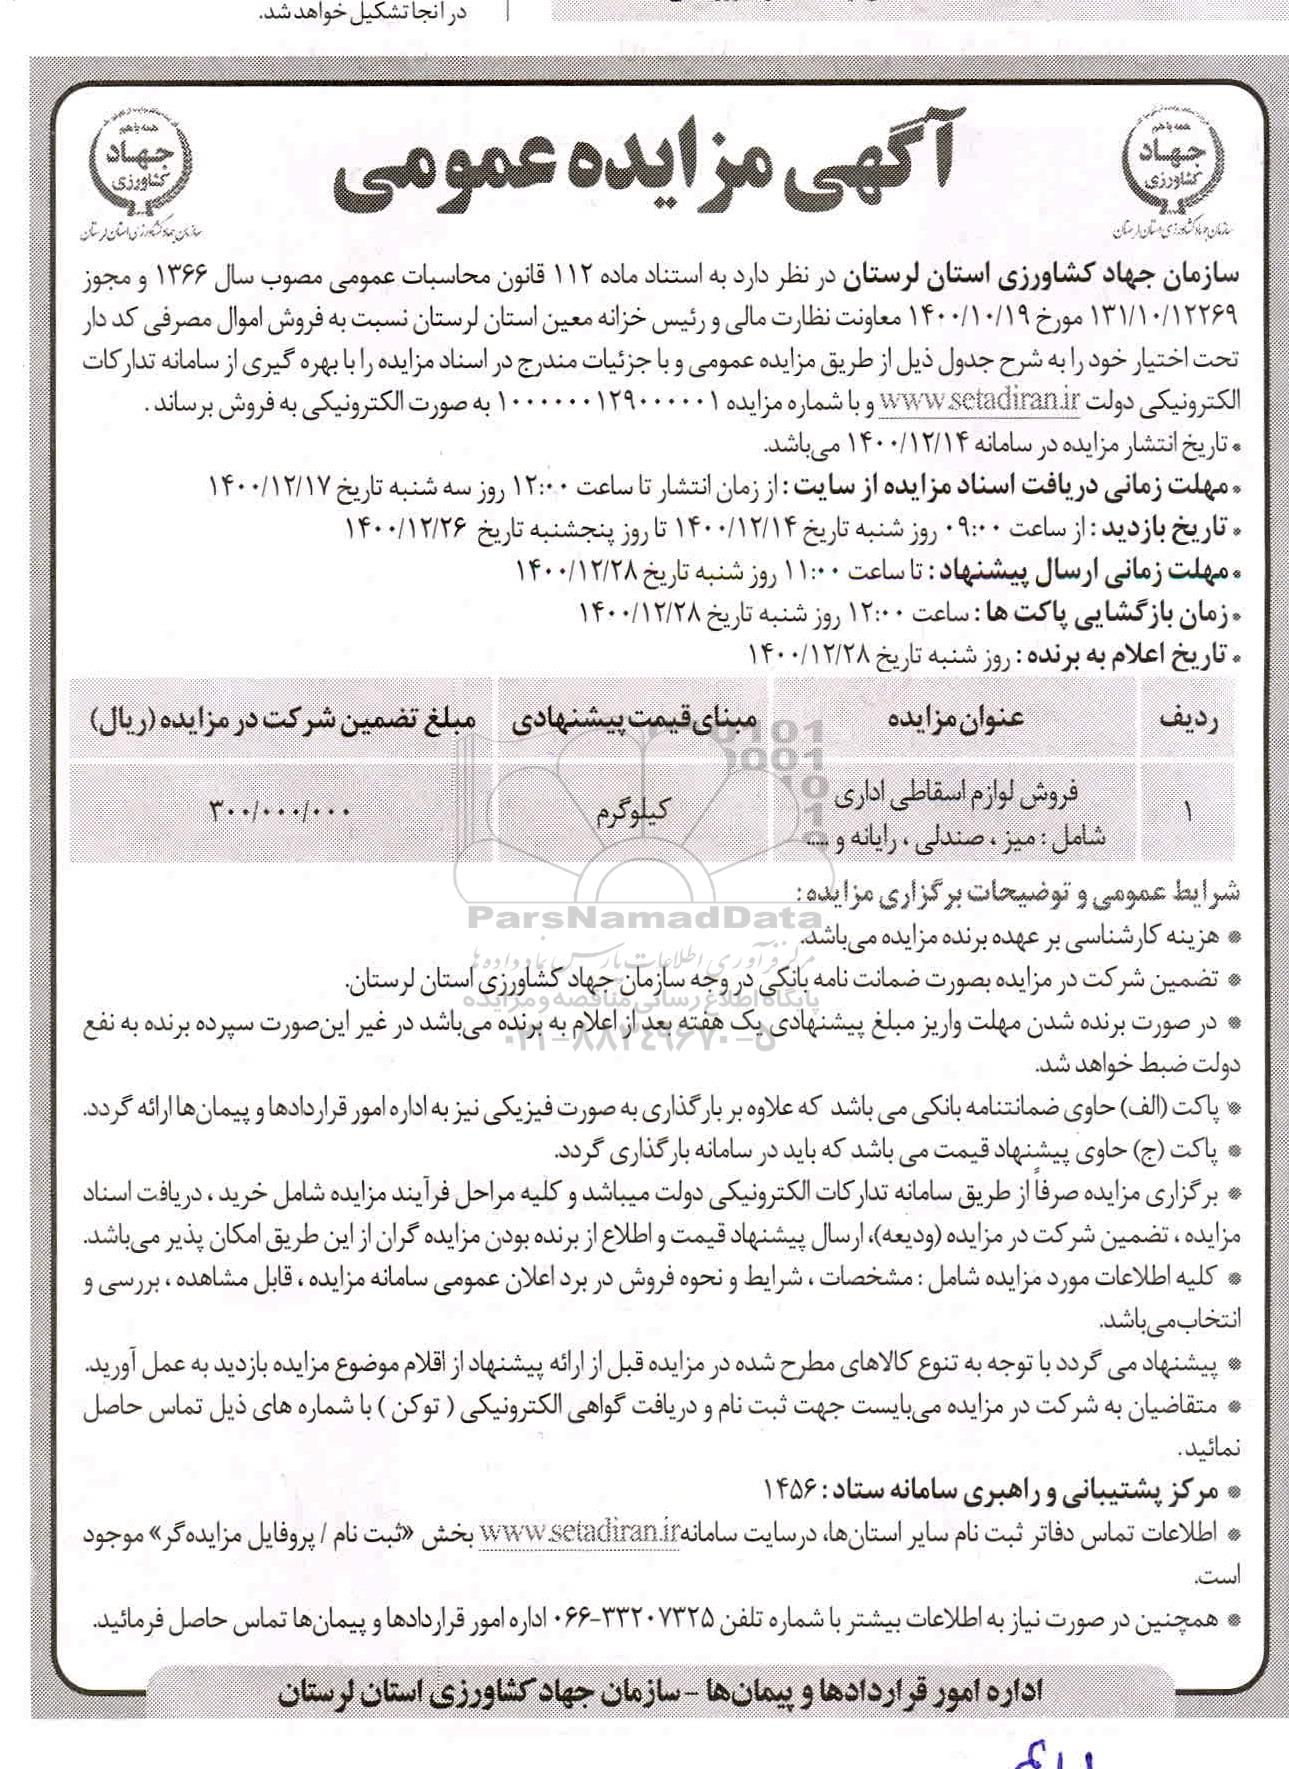 در آنجا تشکیل خواهد شد.
آگهی مزایده عمومی
همه با هم
جهاد
کشاورزی
سازمان جهاد کشاورزی استان لرستان
همه با هم
جهاد
کشاورزی
سازمان جهاد کشاورزی استان لرستان
سازمان جهاد کشاورزی استان لرستان در نظر دارد به استناد ماده ۱۱۲ قانون محاسبات عمومی مصوب سال ۱۳۶۶ و مجوز
۱۳۱/۱۰/۱۲۲۶۹ مورخ ۱۴۰۰/۱۰/۱۹ معاونت نظارت مالی و رئیس خزانه معین استان لرستان نسبت به فروش اموال مصرفی کد دار
تحت اختیار خود را به شرح جدول ذیل از طریق مزایده عمومی و با جزئیات مندرج در اسناد مزایده را با بهره گیری از سامانه تدارکات
الکترونیکی دولت www.setadiran.ir و با شماره مزایده ۱۰۰۰۰۰۰۱۲۹۰۰۰۰۰۱ به صورت الکترونیکی به فروش برساند .
* تاریخ انتشار مزایده در سامانه ۱۴۰۰/۱۲/۱۴ می‌باشد.
* مهلت زمانی دریافت اسناد مزایده از سایت : از زمان انتشار تا ساعت ۱۲:۰۰ روز سه شنبه تاریخ ۱۴۰۰/۱۲/۱۷
* تاریخ بازدید : از ساعت ۰۹:۰۰ روز شنبه تاریخ ۱۴۰۰/۱۲/۱۴ تا روز پنجشنبه تاریخ ۱۴۰۰/۱۲/۲۶
* مهلت زمانی ارسال پیشنهاد : تا ساعت ۱۱:۰۰ روز شنبه تاریخ ۱۴۰۰/۱۲/۲۸
* زمان بازگشایی پاکت ها : ساعت ۱۲:۰۰ روز شنبه تاریخ ۱۴۰۰/۱۲/۲۸
* تاریخ اعلام به برنده : روز شنبه تاریخ ۱۴۰۰/۱۲/۲۸
ردیف عنوان مزایده مبنای قیمت پیشنهادی مبلغ تضمین شرکت در مزایده (ریال)
۱ فروش لوازم اسقاطی اداری شامل : میز ، صندلی ، رایانه و ..... کیلوگرم ۳۰۰/۰۰۰/۰۰۰
شرایط عمومی و توضیحات برگزاری مزایده :
ParsNamadData
* هزینه کارشناسی بر عهده برنده مزایده می‌باشد.
مرکز فرآوری اطلاعات پارس نماد داده ها
* تضمین شرکت در مزایده بصورت ضمانت نامه بانکی در وجه سازمان جهاد کشاورزی استان لرستان.
پایگاه اطلاع رسانی مناقصه و مزایده
* در صورت برنده شدن مهلت واریز مبلغ پیشنهادی یک هفته بعد از اعلام به برنده می‌باشد در غیر این‌صورت سپرده برنده به نفع
۰۲۱-۸۸۳۴۹۶۷۰-۵
دولت ضبط خواهد شد.
* پاکت (الف) حاوی ضمانتنامه بانکی می باشد که علاوه بر بارگذاری به صورت فیزیکی نیز به اداره امور قراردادها و پیمان‌ها ارائه گردد.
* پاکت (ج) حاوی پیشنهاد قیمت می باشد که باید در سامانه بارگذاری گردد.
* برگزاری مزایده صرفاً از طریق سامانه تدارکات الکترونیکی دولت میباشد و کلیه مراحل فرآیند مزایده شامل خرید ، دریافت اسناد
مزایده ، تضمین شرکت در مزایده (ودیعه)، ارسال پیشنهاد قیمت و اطلاع از برنده بودن مزایده گران از این طریق امکان پذیر می‌باشد.
* کلیه اطلاعات مورد مزایده شامل : مشخصات ، شرایط و نحوه فروش در برد اعلان عمومی سامانه مزایده ، قابل مشاهده ، بررسی و
انتخاب‌می‌باشد.
* پیشنهاد می گردد با توجه به تنوع کالاهای مطرح شده در مزایده قبل از ارائه پیشنهاد از اقلام موضوع مزایده بازدید به عمل آورید.
* متقاضیان به شرکت در مزایده می‌بایست جهت ثبت نام و دریافت گواهی الکترونیکی ( توکن ) با شماره های ذیل تماس حاصل
نمائید.
* مرکز پشتیبانی و راهبری سامانه ستاد : ۱۴۵۶
* اطلاعات تماس دفاتر ثبت نام سایر استان‌ها، درسایت سامانه www.setadiran.ir بخش «ثبت نام / پروفایل مزایده‌گر» موجود
است.
* همچنین در صورت نیاز به اطلاعات بیشتر با شماره تلفن ۳۳۲۰۷۳۲۵-۰۶۶ اداره امور قراردادها و پیمان‌ها تماس حاصل فرمائید.
اداره امور قراردادها و پیمان‌ها - سازمان جهاد کشاورزی استان لرستان